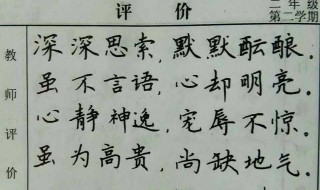 评价
二年级
第二学期
教师评价
深深思索,默默酝酿。
虽不言语,心却明亮。
心静神逸,宠辱不惊。
虽为高贵,尚缺地气。